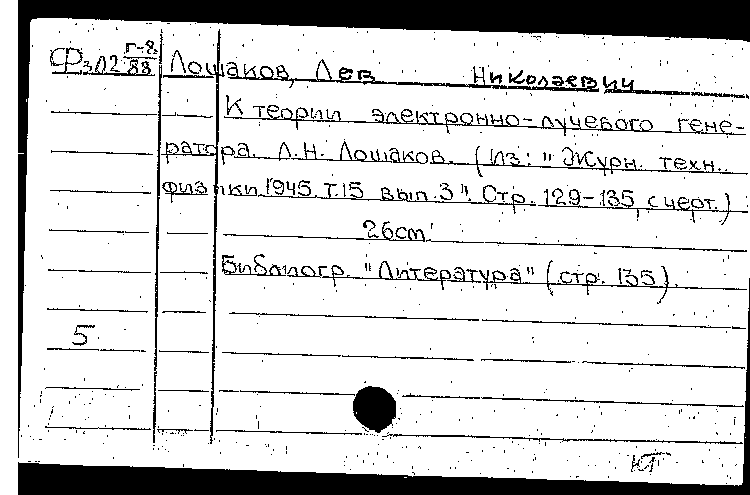 Фз Л2 Г-8/88 Лошаков, Лев Николаевич
К теории электронно-лучевого гене-
ратора. Л.Н. Лошаков. (Из: "Журн. техн.
физики 1945. Т.15 вып. 3". Стр. 129-135, с черт.)
26cm.
Библиогр. "Литература" (стр. 135).
5
КТ